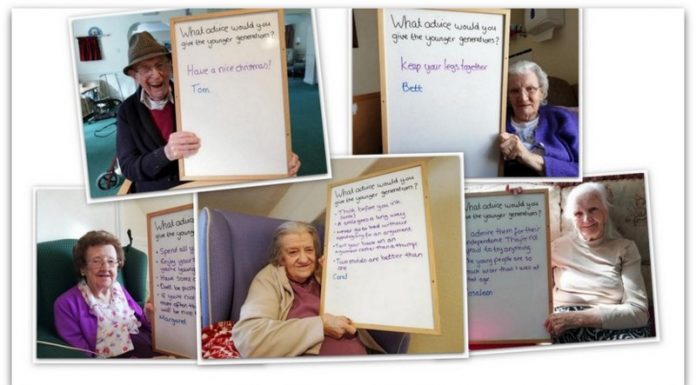 What advice would you
give the younger generations?
Have a nice christmas!
Tom
What advice would you
give the younger generations?
Keep your legs together
Bett
What advice would you
give the younger
Spend all y
Enjoy your
you're young
Have some
Don't be
If you're
more often
will be nice
Margaret
What advice would you
give the younger generations?
- Think before you
- A smile goes a long way
- Never go to bed without
apologising for an argument
- Turn your back on an
argument rather than a thump!
- Two minds are better than
one
Carol
What advice would you
the younger generations?
admire them for their
independence. They're not
afraid to try anything
young people are so
much wiser than I was at
age